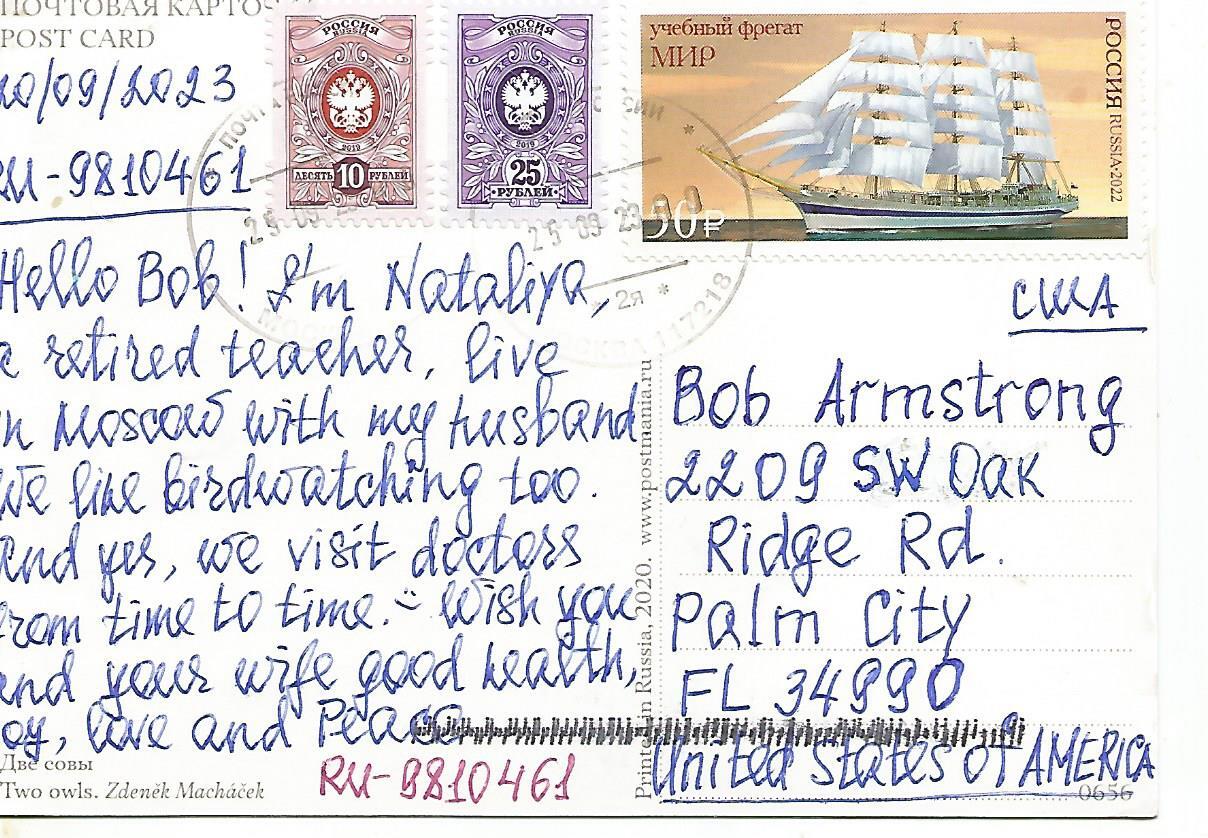 ПОЧТОВАЯ КАРТО
POST CARD
20/09/2023
RU-9810461
РОССИЯ
RUSSIA
2019
ДЕСЯТЬ 10 РУБЛЕЙ
РОССИЯ
RUSSIA
2019
25
РУБЛЕЙ
учебный фрегат
МИР
РОССИЯ RUSSIA•2022
50₽
25 09 23
* 2я *
МОСКВА 117218
Hello Bob! I'm Nataliya,
a retired teacher, live
in Moscow with my husband
We like birdwatching too.
And yes, we visit doctors
from time to time. Wish you
and your wife good health,
joy, love and Peace
RU-9810461
Две совы
Two owls. Zdeněk Macháček
Printed in Russia, 2020. www.postmania.ru
США
Bob Armstrong
2209 SW Oak
Ridge Rd.
Palm City
FL 34990
United States of AMERICA
0656